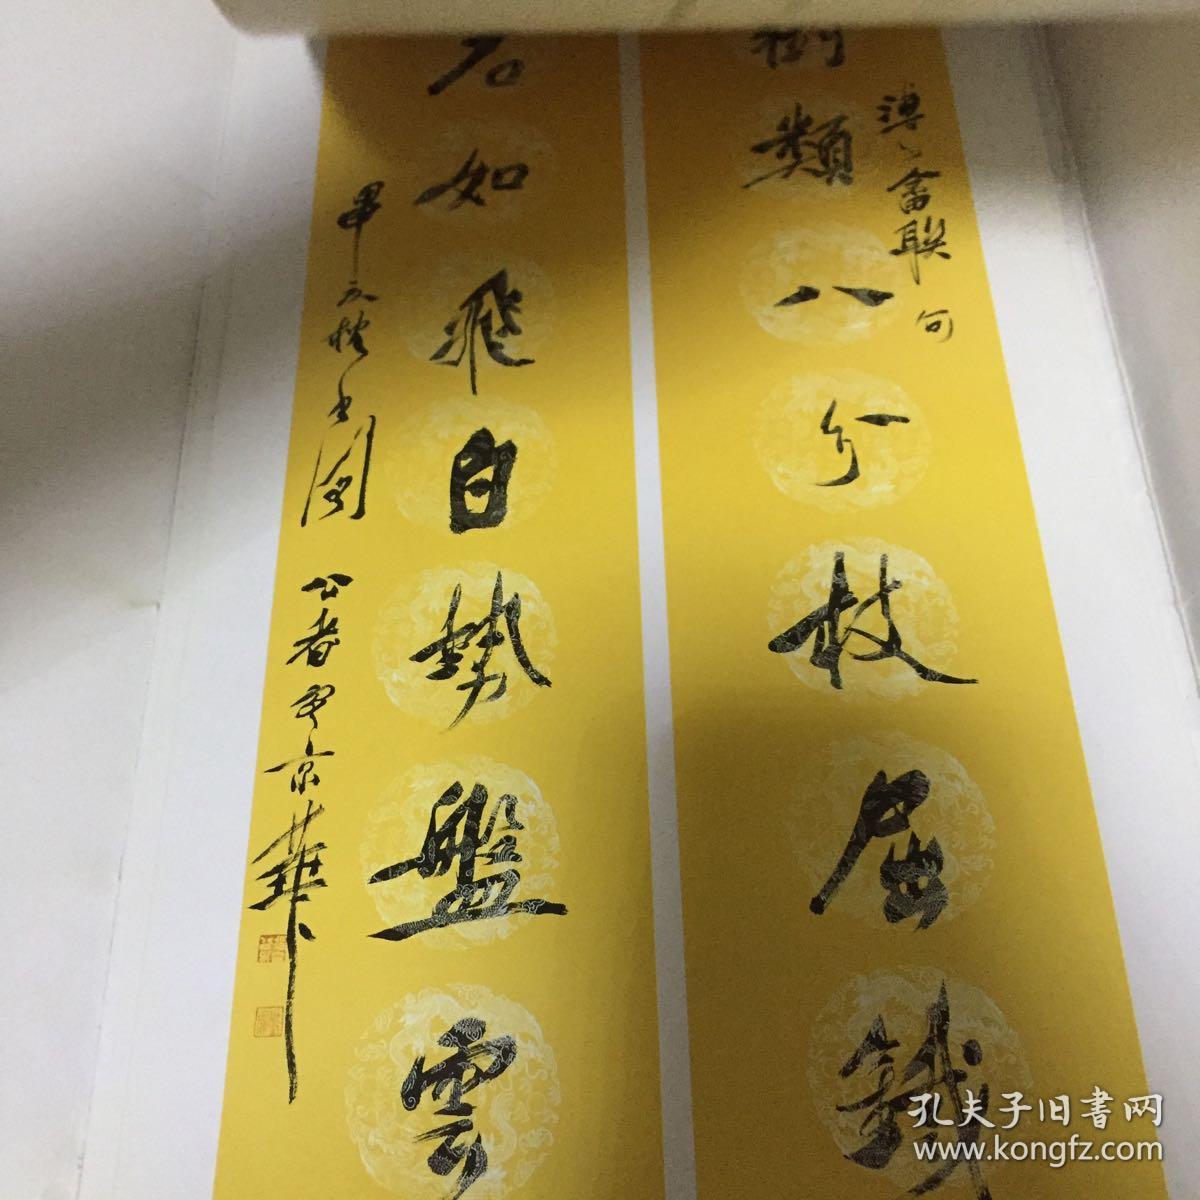 樹類八分枝屈鐵
聯句
石如飛白勢盤雲
甲
公者
京華
孔夫子旧書网
www.kongfz.com